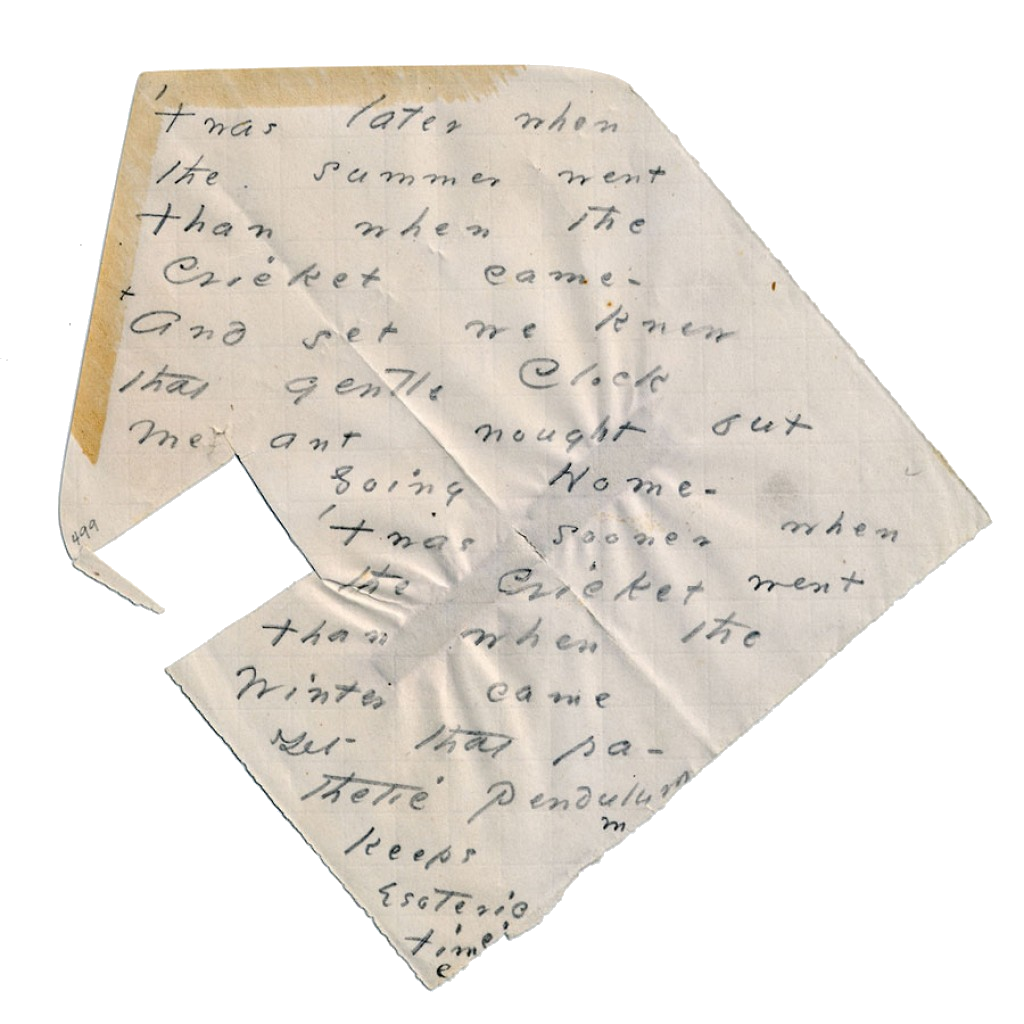 'Twas later when
the summer went
than when the
Cricket came -
+ And yet we knew
that gentle Clock
meant nought but
Going Home -
'Twas sooner when
the Cricket went
than when the
Winter came
Yet that pa-
thetic Pendulum
m
keeps
Esoteric
time
e
499